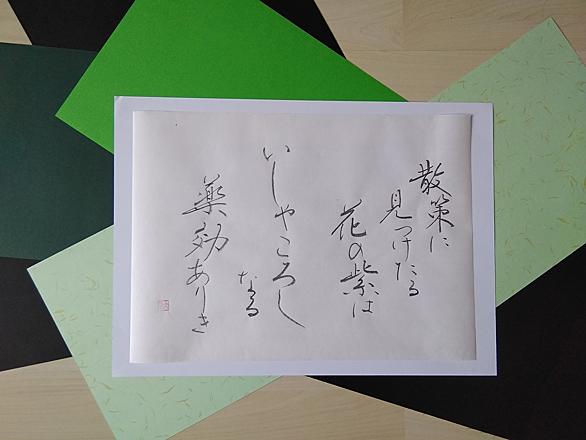 散策に
見つけたる
花の紫は
いしやころし
なる
薬効ありき